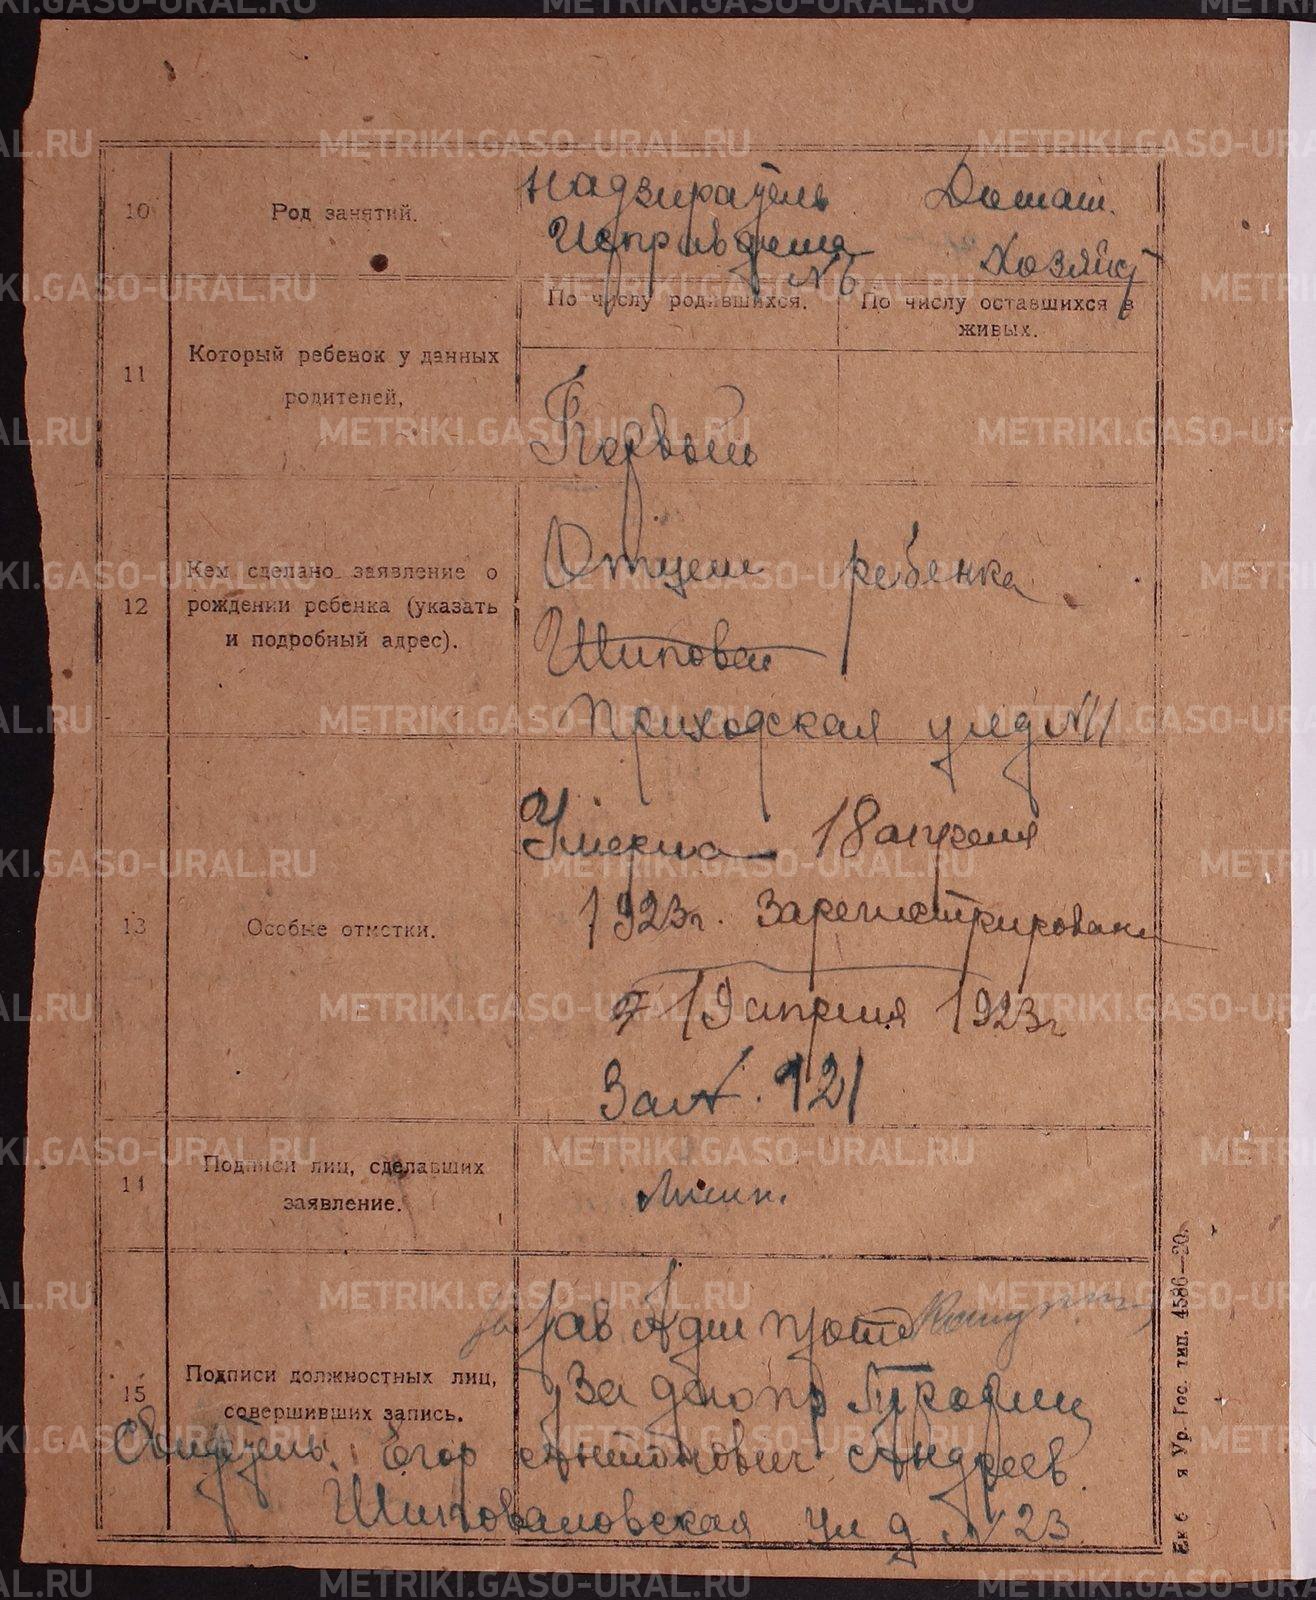 METRIKI.GASO-URAL.RU
10
Род занятий.
Надзиратель
Исправдома
№ 6
Домаш.
Хозяйст
11
Который ребенок у данных
родителей,
По числу родившихся.
По числу оставшихся в
живых.
Первый
12
Кем сделано заявление о
рождении ребенка (указать
и подробный адрес).
Отцем ребенка
Приходская ул д № 11
13
Особые отметки.
Умерла 18 апреля
1923г. Зарегистрирована
19 апреля 1923г
За №. 121
14
Подписи лиц, сделавших
заявление.
15
Подписи должностных лиц,
совершивших запись.
Зав
За делопр
Свидетель: Егор Антонович Андреев.
ул д № 23.
Ур. Гос. тип. 4586—20.